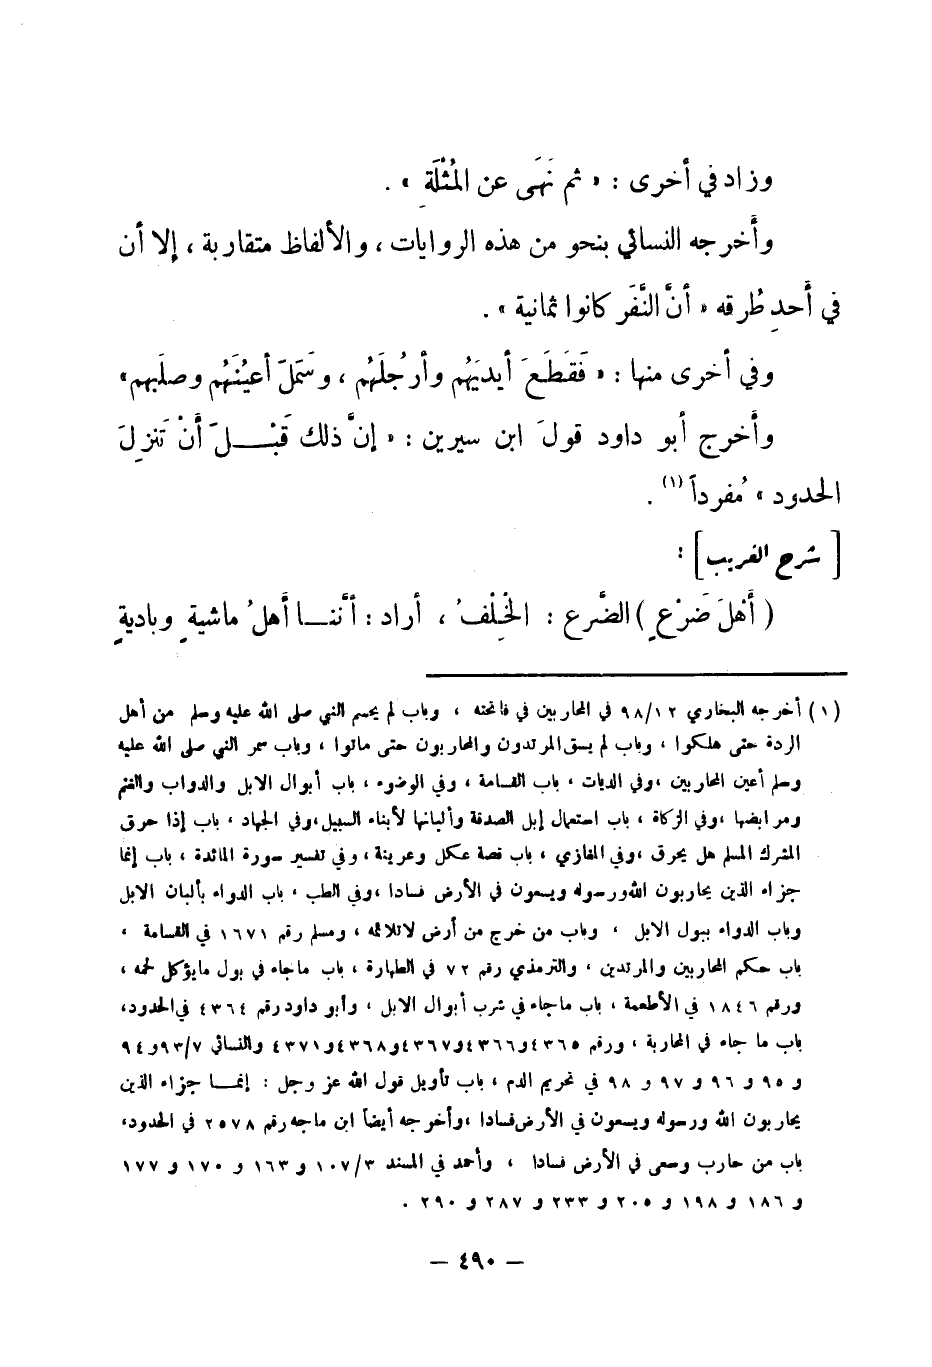 وزاد في أخرى : « ثم نَهَى عن المُثْلَةِ » .
وأَخرجه النسائي بنحو من هذه الروايات ، والألفاظ متقاربة ، إلا أن
في أَحدِ طُرقه « أنَّ النَّفَر كانوا ثمانية » .
وفي أخرى منها : « فَقَطَعَ أيديَهُم وأرجُلَهُم ، وسَمَلَ أعيُنَهُم وصلَبهم »
وأَخرج أبو داود قولَ ابن سيرين : « إنَّ ذلك قَبْلَ أَنْ تَنزِلَ
الحدود » مُفرداً (١) .
[ شرح الغريب ] :
( أَهْلَ ضَرْعٍ ) الضَّرع : الخِلْفُ ، أراد : أنَّنا أَهلُ ماشيةٍ وباديةٍ
(١) أخرجه البخاري ٩٨/١٢ في المحاربين في فاتحته ، وباب لم يحسم النبي صلى الله عليه وسلم من أهل
الردة حتى هلكوا ، وباب لم يسق المرتدون والمحاربون حتى ماتوا ، وباب سمر النبي صلى الله عليه
وسلم أعين المحاربين ، وفي الديات ، باب القسامة ، وفي الوضوء ، باب أبوال الابل والدواب والغنم
ومرابضها ، وفي الزكاة ، باب استعمال إبل الصدقة وألبانها لأبناء السبيل ، وفي الجهاد ، باب إذا حرق
المشرك المسلم هل يحرق ، وفي المغازي ، باب قصة عكل وعرينة ، وفي تفسير سورة المائدة ، باب إنما
جزاء الذين يحاربون الله ورسوله ويسعون في الأرض فسادا ، وفي الطب ، باب الدواء بألبان الابل
وباب الدواء ببول الابل ، وباب من خرج من أرض لاتلائمه ، ومسلم رقم ١٦٧١ في القسامة ،
باب حكم المحاربين والمرتدين ، والترمذي رقم ٧٢ في الطهارة ، باب ماجاء في بول مايؤكل لحمه ،
ورقم ١٨٤٦ في الأطعمة ، باب ماجاء في شرب أبوال الابل ، وأبو داود رقم ٤٣٦٤ في الحدود،
باب ما جاء في المحاربة ، ورقم ٤٣٦٥ و٤٣٦٦ و٤٣٦٧ و٤٣٦٨ و٤٣٧١ والنسائي ٩٣/٧ و ٩٤
و ٩٥ و ٩٦ و ٩٧ و ٩٨ في تحريم الدم ، باب تأويل قول الله عز وجل : إنما جزاء الذين
يحاربون الله ورسوله ويسعون في الأرض فسادا ، وأخرجه أيضاً ابن ماجه رقم ٢٥٧٨ في الحدود،
باب من حارب وسعى في الأرض فسادا ، وأحمد في المسند ١٠٧/٣ و ١٦٣ و ١٧٠ و ١٧٧
و ١٨٦ و ١٩٨ و ٢٠٥ و ٢٣٣ و ٢٨٧ و ٢٩٠ .
– ٤٩٠ –